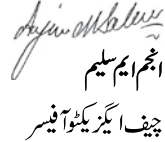 Anjum M Saleem
انجم ایم سلیم
چیف ایگزیکٹو آفیسر